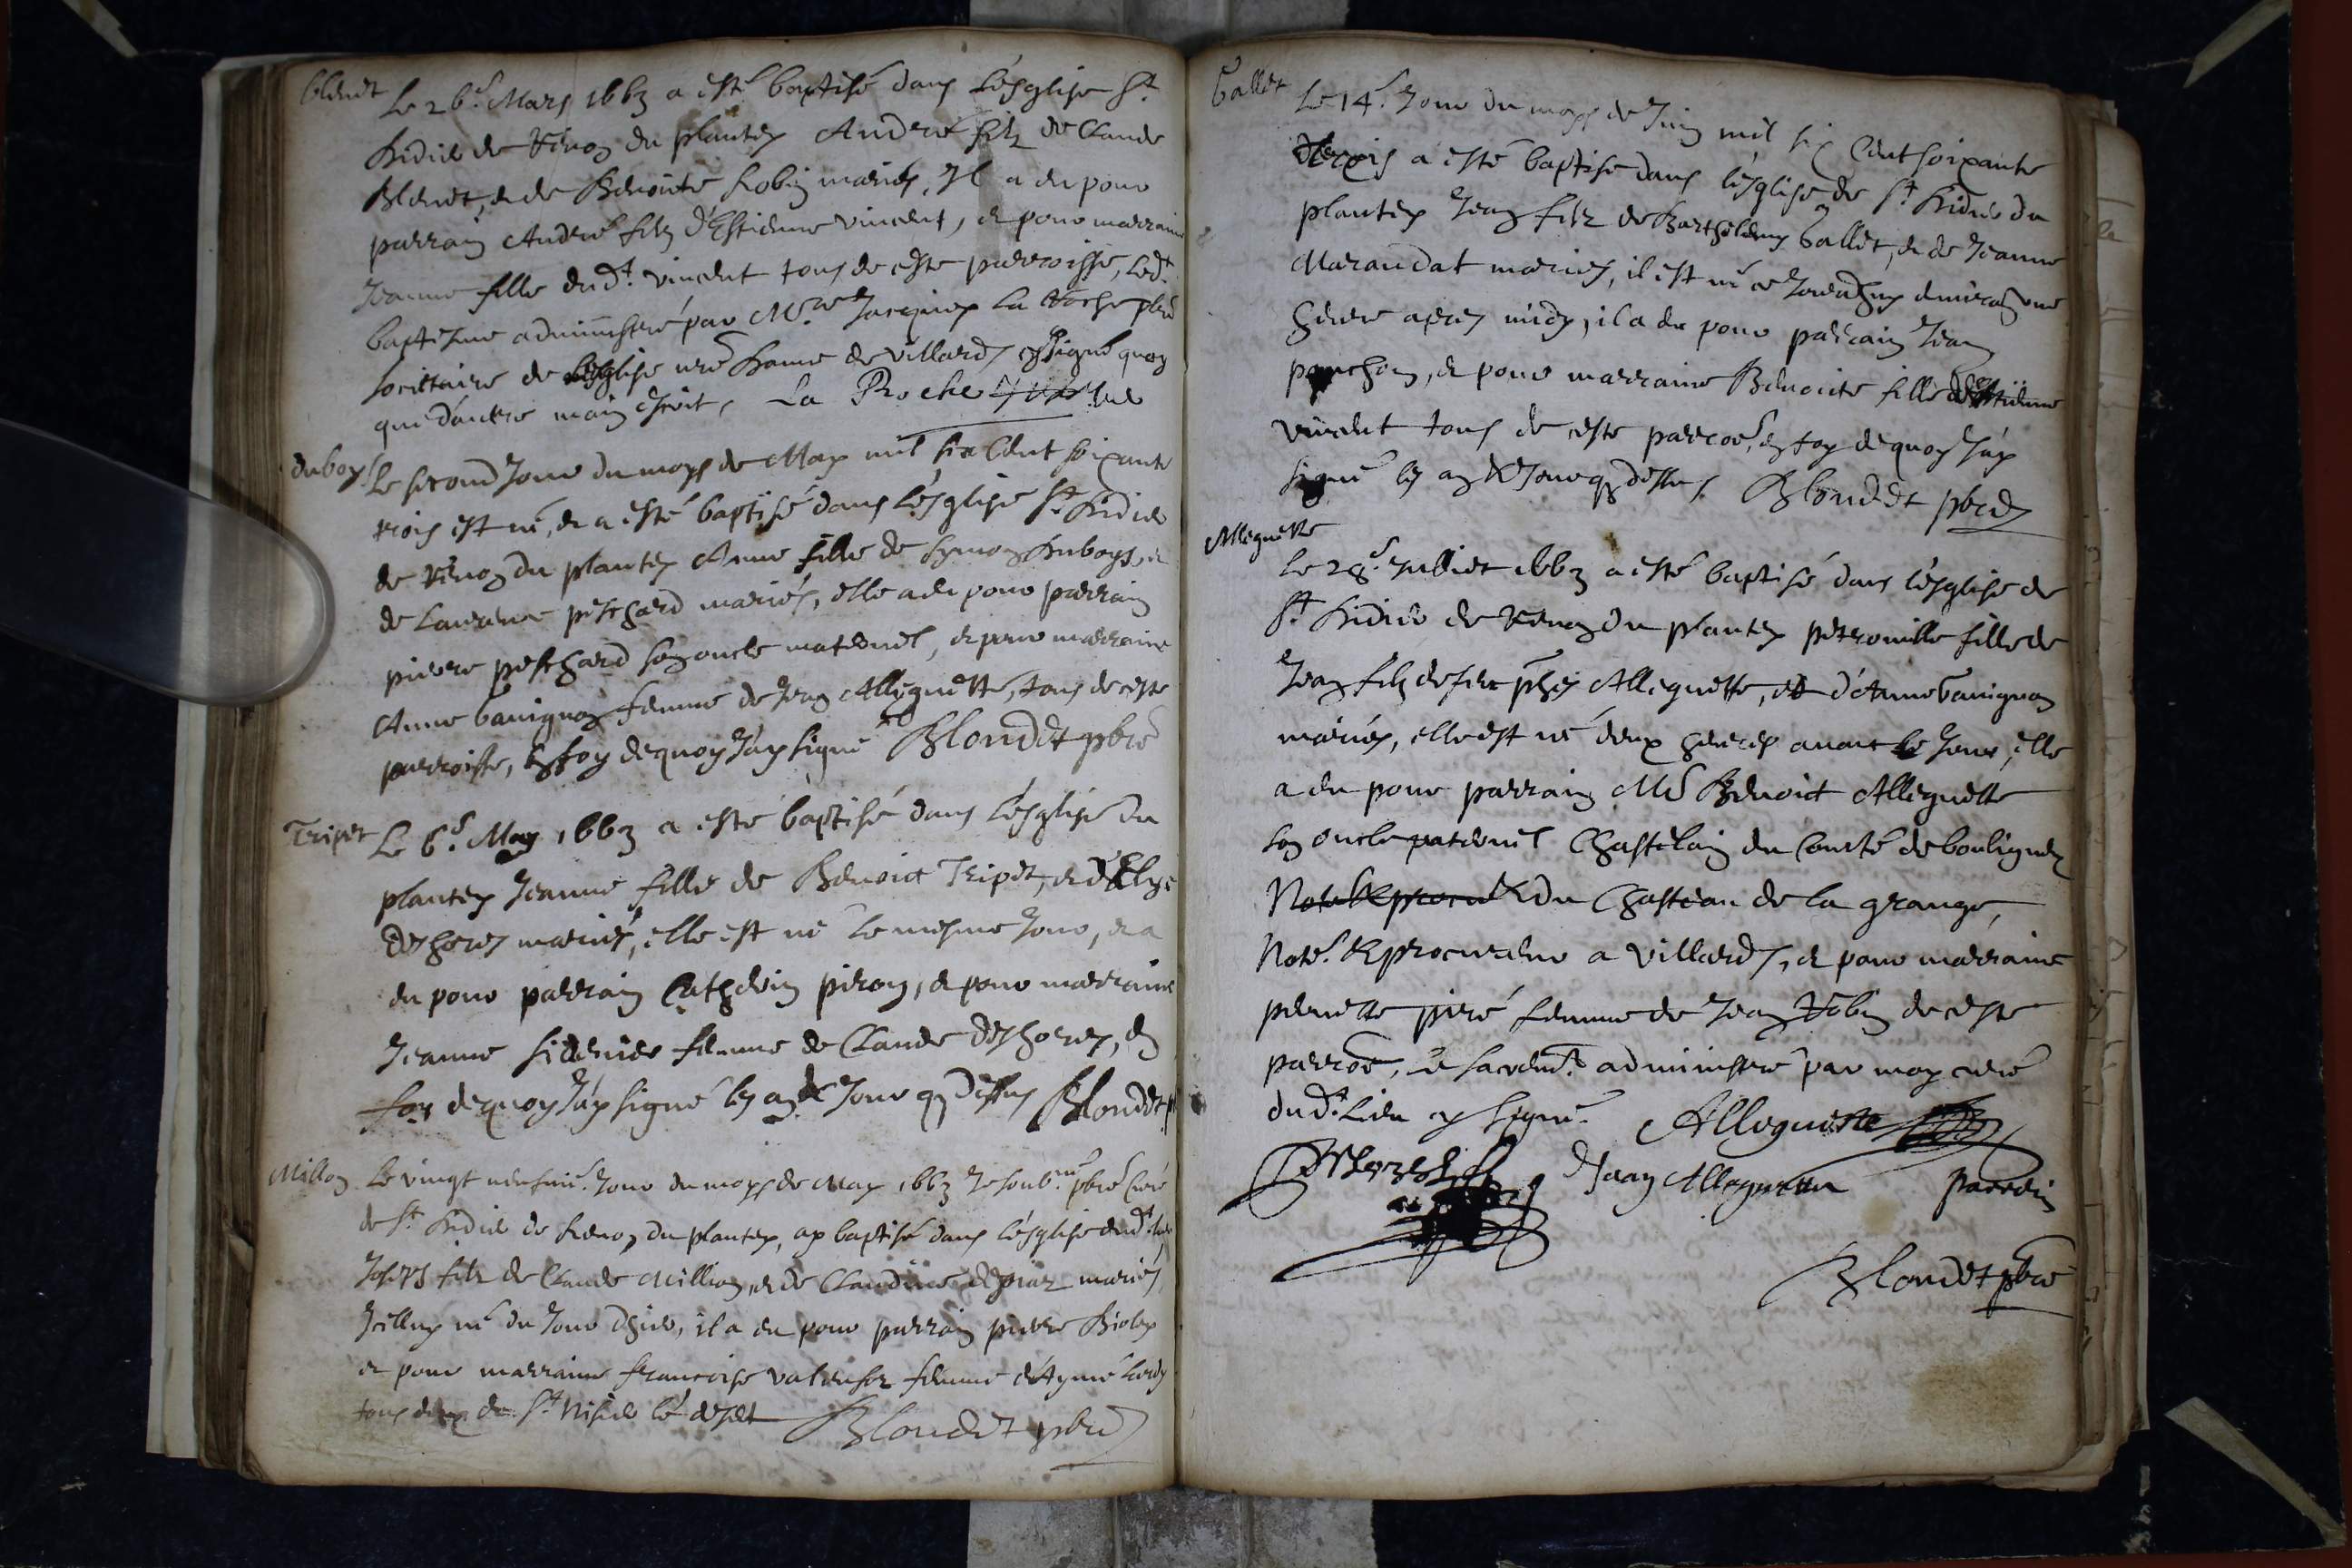 blenet
Le 26.e Mars 1663 a esté baptisé dans L'esglise St
Didier de Renon du plantey André filz de Claude
Blenet, et de Benoite Robin mariés, Il a eu pour
parrain André filz d'Estienne vincent, et pour marraine
Jeanne fille dud.t vincent tous de ceste parroisse, led.t
baptesme administré par Mre Jacques La Roche pbre
societaire de l'esglise nre Dame de villards signé quoy
que d'autre main escrit, La Roche
duboys
Le second Jour du moys de May mil six Cent soixante
trois est né, et a esté baptisé dans L'esglise St Didier
de Renon du plantey Anne fille de Symon Duboys, et
de Laurence peschard mariés, elle a eu pour parrain
pierre peschard son oncle maternel, et pour marraine
Anne banignon femme de Jean Alleguette, tous de ceste
parroisse, En foy dequoy J'ay signé Blondet pbre
Tripet
Le 6.e May 1663 a esté baptisé dans L'esglise du
plantey Jeanne fille de Benoict Tripet, et d'Elyse
deshores mariés, elle est né le mesme Jour, et a
eu pour parrain Catherin piron, et pour marraine
Jeanne femme de Claude deshores, En
foy dequoy J'ay signé les an et Jour que dessus Blondet p
Millon
Le vingt neufvie. Jour du moys de May 1663 Je soub.né pbre Curé
de St Didier de Renon du plantey, ay baptisé dans L'esglise dud.t lieu
filz de Claude Million, et de Claudine mariés,
Icelluy né du Jour d'hier, il a eu pour parrain pierre Bioley
et pour marraine francoise femme d'Aymé
tous deux de St Nisier le desert Blondet pbre
Gallet
Le 14.e Jour du moys de Juin mil six Cent soixante
trois a esté baptisé dans L'esglise de St Didier du
plantey Jean filz de Barthelemy Gallet, et de Jeanne
Marandat mariés, il est né ce Jourdhuy environ une
heure apres midy, il a eu pour parrain Jean
ponchon, et pour marraine Benoicte fille d'Estienne
vincent tous de ceste parroe, en foy dequoy J'ay
signé les an et Jour que dessus. Blondet pbre
Alleguette
Le 28.e Julliet 1663 a esté baptisé dans L'esglise de
St Didier de Renon du plantey petronille fille de
Jean filz de feu Alleguette, et d'Anne banignon
mariés, elle est né deux heures avant le Jour, elle
a eu pour parrain Me Benoict Alleguette
son oncle paternel Chastelain du Comté de bouligneu
du Chasteau de la grange,
Notre. et procureur a villards, et pour marraine
pernette piré femme de Jean Robin de ceste
parroe, le sacremt. administré par moy curé
dud.t Lieu ay signé. Alleguette
Jean Alleguette parrin
Blondet pbre